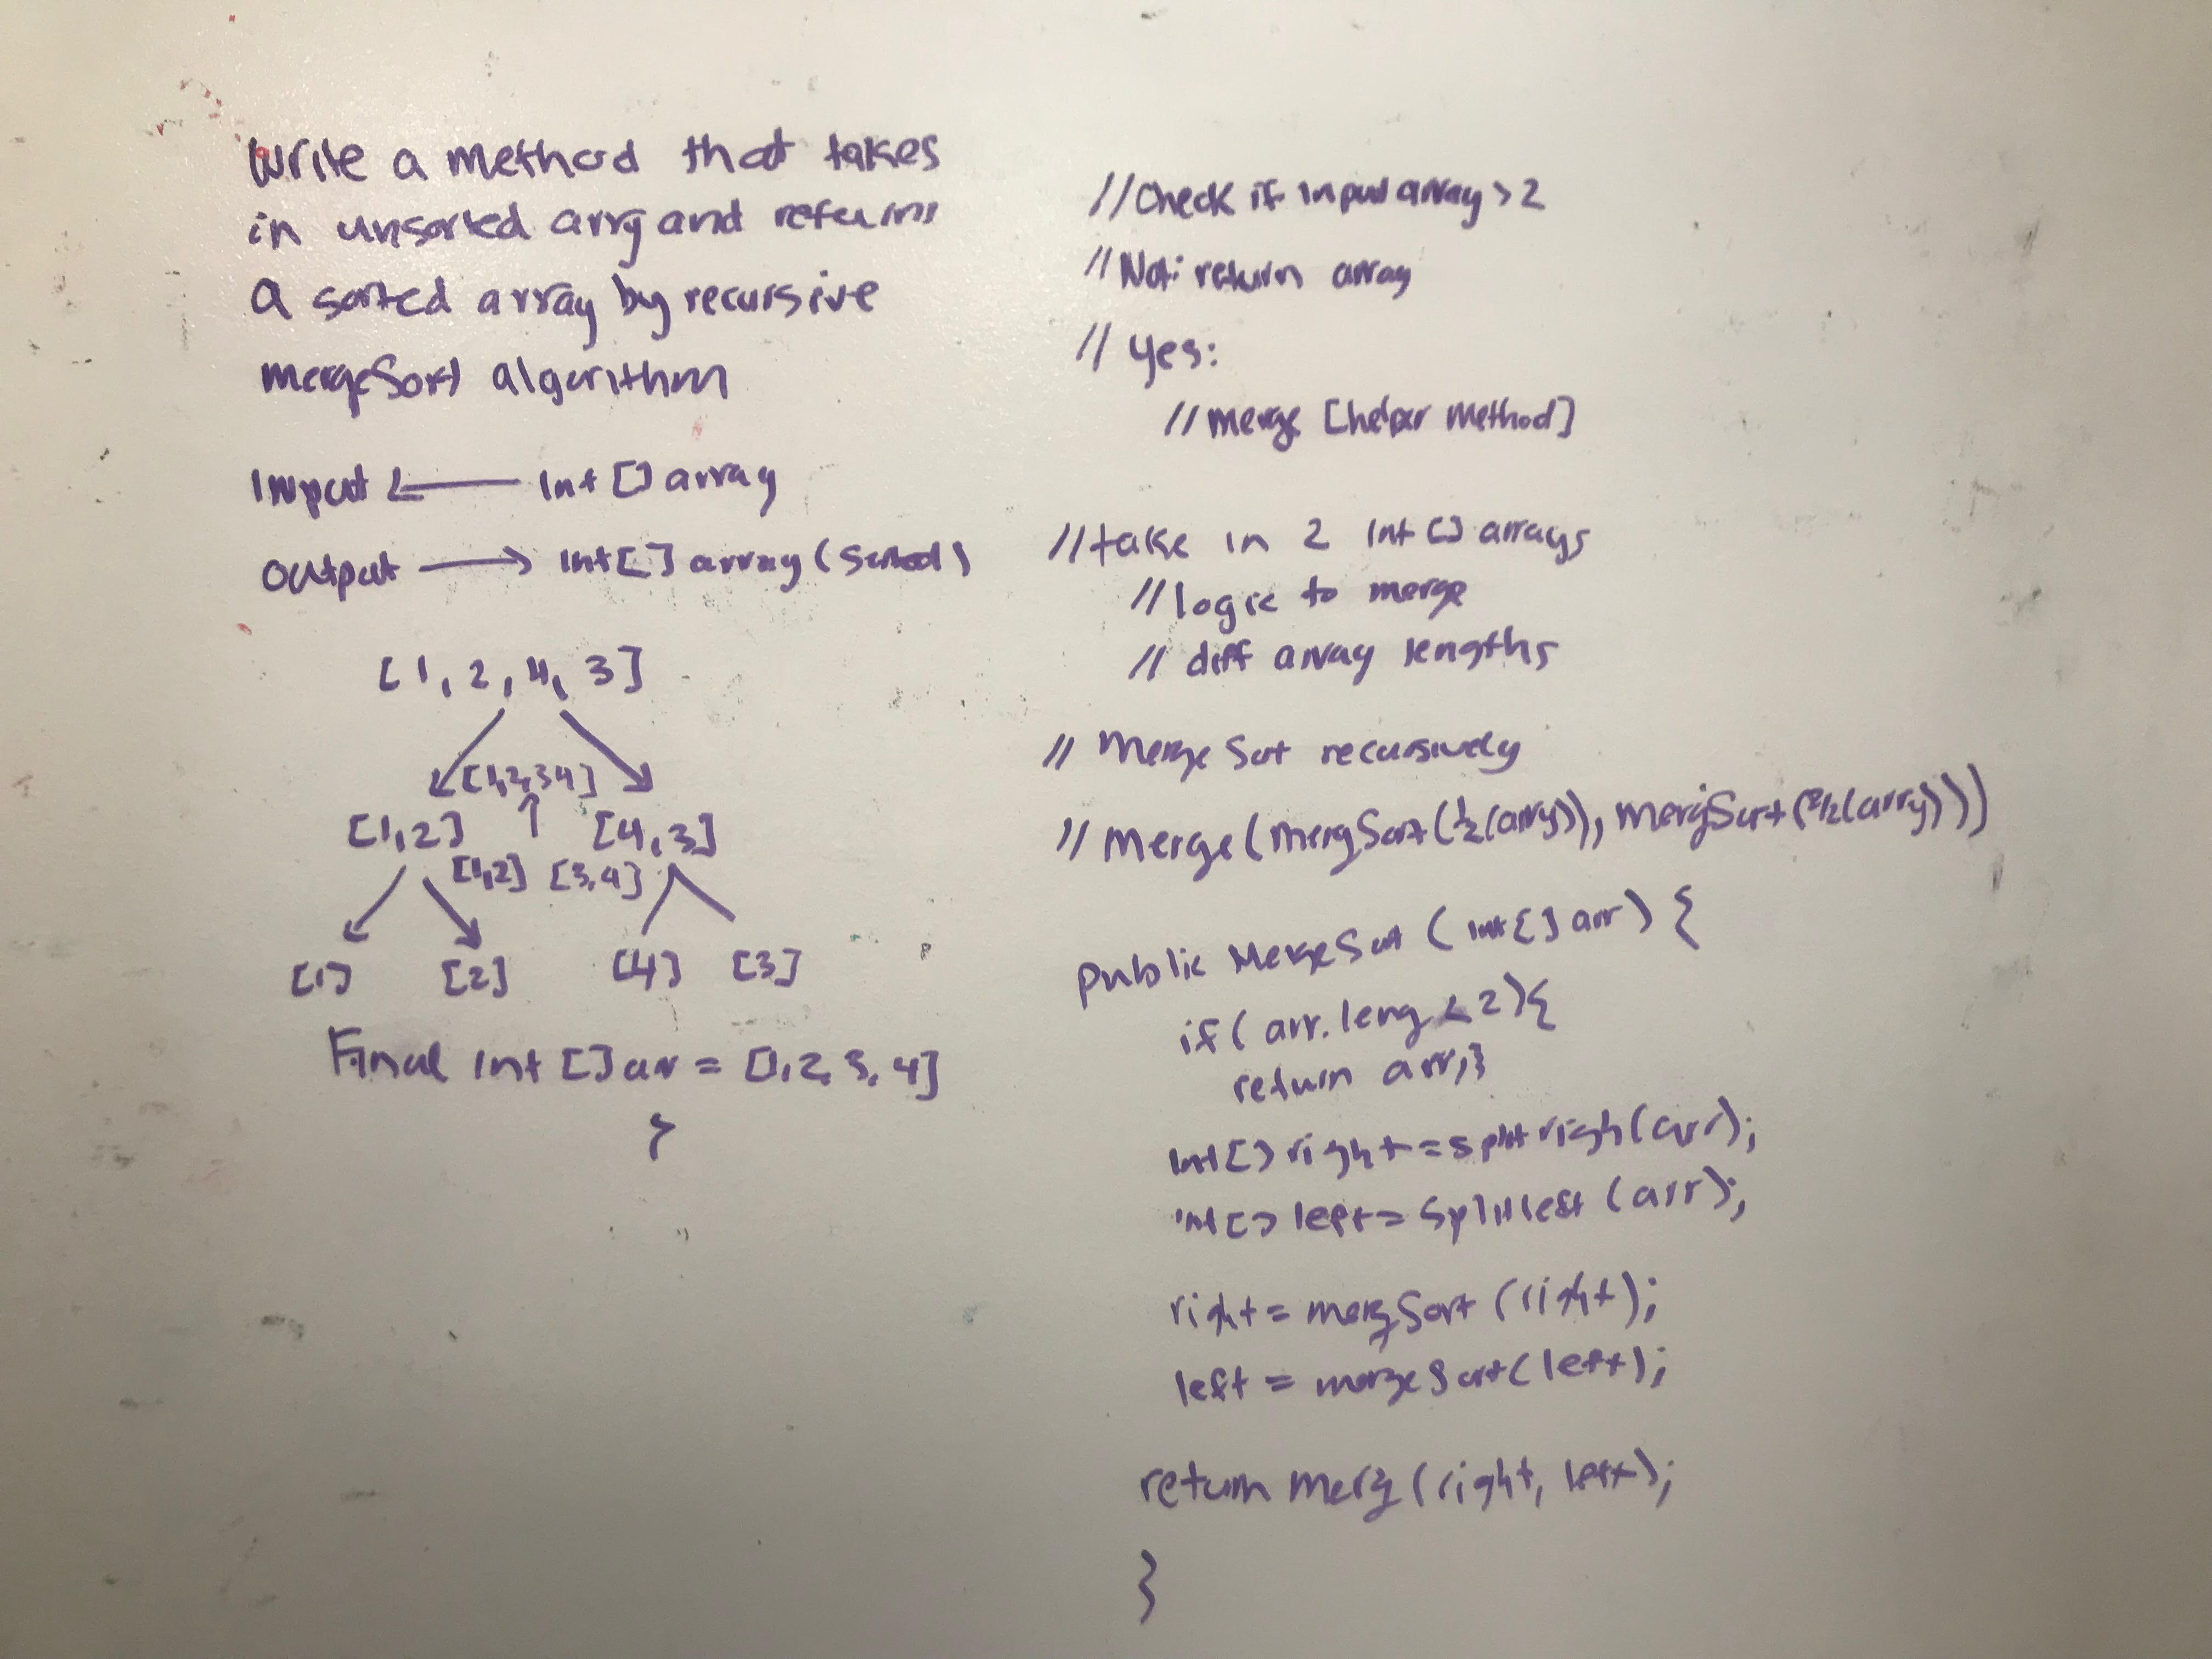 Write a method that takes
in unsorted arry and returns
a sorted array by recursive
mergeSort algorithm
Input ← Int [] array
Output → Int[] array (sorted)
[1, 2, 4, 3]
[1,2,3 4]
[1,2] ↑ [4, 3]
[1,2] [3,4]
[1] [2] [4] [3]
Final Int [] arr = [1, 2, 3, 4]
}
//Check if input array > 2
//Not: return array
// yes:
//merge [helper method]
//take in 2 Int [] arrays
//logic to merge
// diff array lengths
// Merge Sort recursively
// merge(mergSort(1/2(arry)), mergSort(2/2(arry)))
public MergeSort (int[] arr) {
if( arr.leng < 2){
return arr;}
int[] right = splitrigh(arr);
int[] left = Splitleft (arr);
right = mergSort (right);
left = mergeSort(left);
return merg (right, left);
}